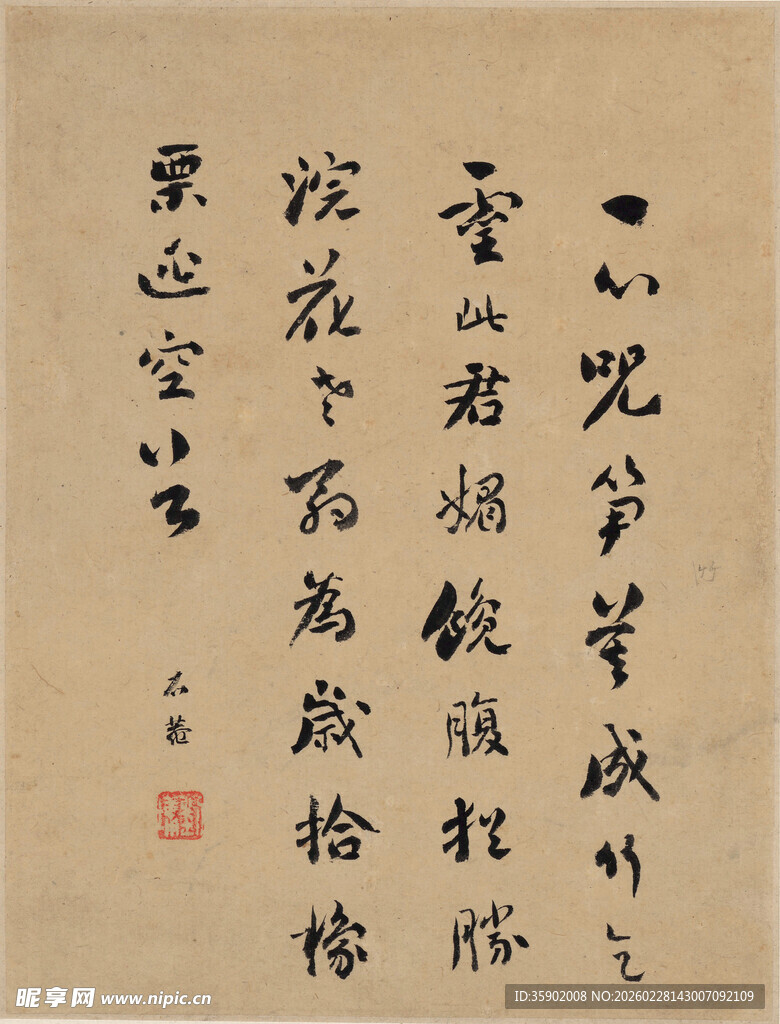 一心咒筍莫成竹乞
靈此君媚饞腹猶勝
浣花老翁為歲拾橡
栗逃空谷
石菴
竹
昵享网 www.nipic.cn
ID:35902008 NO:20260228143007092109